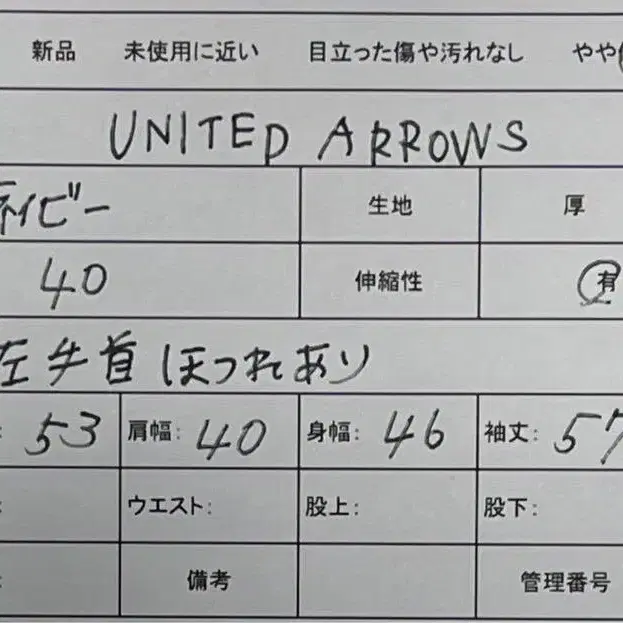 新品 未使用に近い 目立った傷や汚れなし やや
UNITED ARROWS
ネイビー 生地 厚
40 伸縮性 有
左手首ほつれあり
: 53 肩幅: 40 身幅: 46 袖丈: 57
: ウエスト: 股上: 股下:
: 備考 管理番号